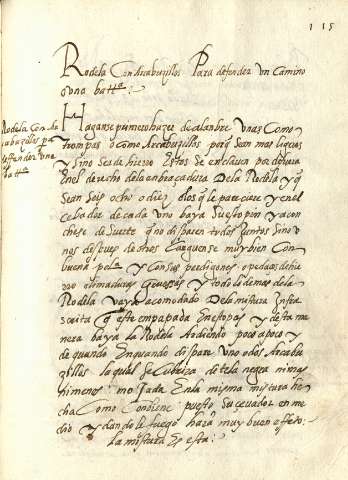 115
Rodela Con Arcabuzillos Para defender Un Camino
o una batta
Rodela Con Ar
cabuzillos pa
deffender una
batta
Haganse primero hazer de alambre Unas Como
trompas o Como Arcabuzillos porq̃ sean mas ligeras
y Sino sea de hierro Estos Se enclauen por de fuera
En el derecho dela enbraçadura Dela Rodela y q̃
Sean Seis ocho o diez o los q̃ le pareciere y en el
Ceba dor de cada uno baya Su estopin y acon
chese de Suerte que no disparen todos Juntos Sino
unos despues de otros Carguense muy bien Con
buena pol.ra y Con Sus perdigones o pedaços de hie
rro o limaduras Gruessas y todo lo demas dela
Rodela vaya acomodado Dela mistura Infra
escrita que este empapada En estopas y desta ma
nera baya la Rodela Ardiendo poco a poco y
de quando En quando dispare Uno o dos Arcabu
zillos la qual Se Cubrira de tela negra ni mas
ni menos mojada En la misma mistura he
cha Como Conbiene puesto Su ceuador en me
dio y dandole fuego hara muy buen effeto:
La mistura Es esta: